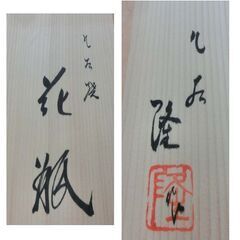 九谷焼
花瓶
九谷
隆
作